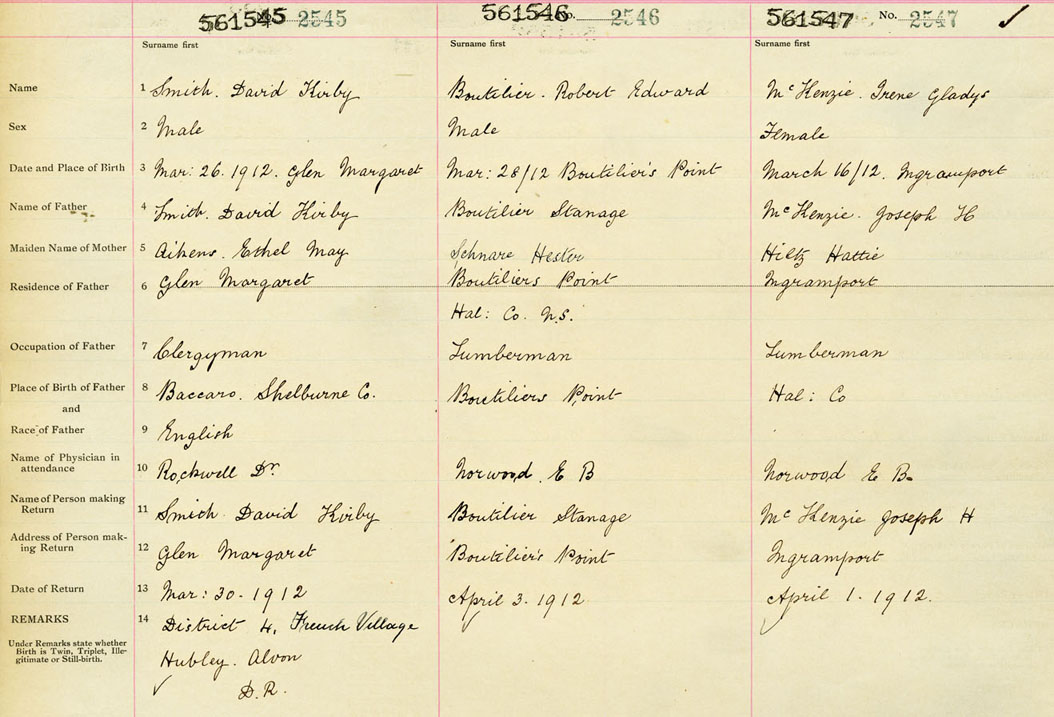 561545 2545 561546 No. 2546 561547 No. 2547
Surname first Surname first Surname first
Name 1 Smith. David Kirby Boutilier. Robert Edward McKenzie. Irene Gladys
Sex 2 Male Male Female
Date and Place of Birth 3 Mar: 26. 1912. Glen Margaret Mar: 28/12 Boutilier's Point March 16/12. Ingramport
Name of Father 4 Smith. David Kirby Boutilier Stanage McKenzie. Joseph H
Maiden Name of Mother 5 Aikens. Ethel May Schnare Hester Hiltz Hattie
Residence of Father 6 Glen Margaret Boutiliers Point Ingramport
Hal: Co. N.S.
Occupation of Father 7 Clergyman Lumberman Lumberman
Place of Birth of Father 8 Baccaro. Shelburne Co. Boutiliers Point Hal: Co
and
Race of Father 9 English
Name of Physician in
attendance 10 Rockwell Dr. Norwood. E B Norwood E B.
Name of Person making
Return 11 Smith David Kirby Boutilier Stanage McKenzie Joseph H
Address of Person mak-
ing Return 12 Glen Margaret Boutilier's Point Ingramport
Date of Return 13 Mar: 30. 1912 April 3. 1912 April 1. 1912.
REMARKS 14 District 4, French Village
Under Remarks state whether
Birth is Twin, Triplet, Ille-
gitimate or Still-birth.
Hubley. Alvon
D.R.